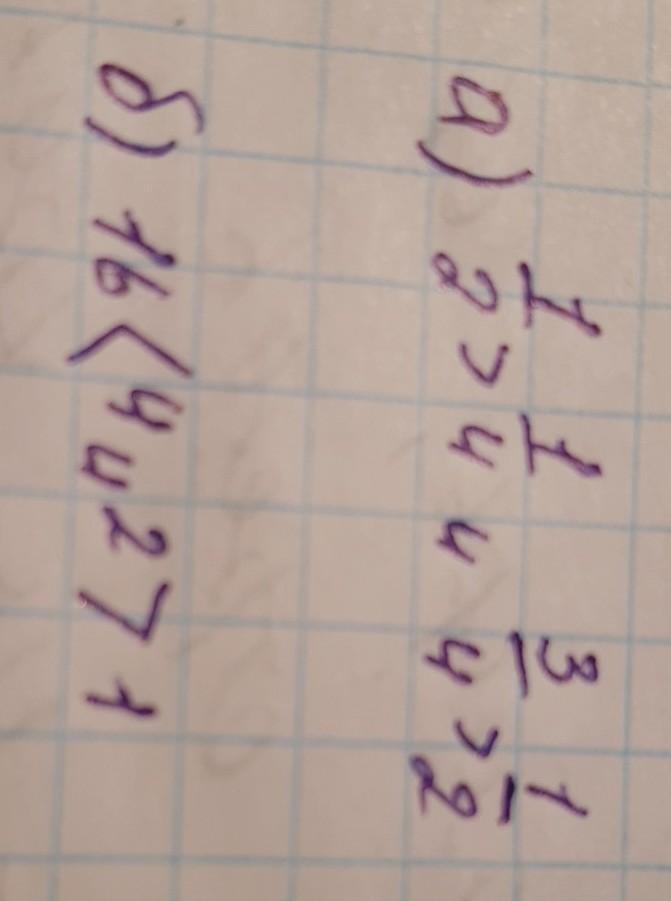 а) 1/2 > 1/4 и 3/4 > 1/2
б) 16 < 4 и 2 > 1